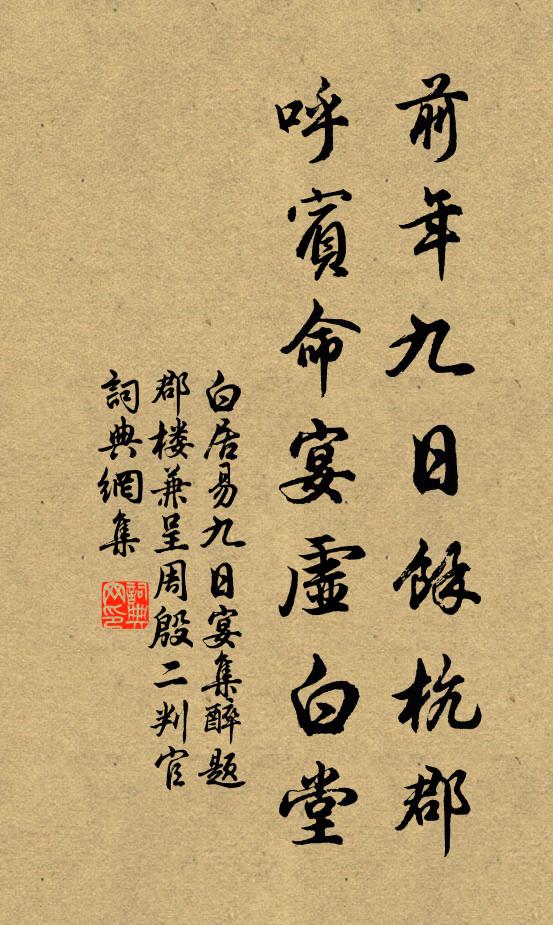 前年九日餘杭郡
呼賓命宴虛白堂
白居易九日宴集醉題
郡楼兼呈周殷二判官
詞典網集
詞典网印